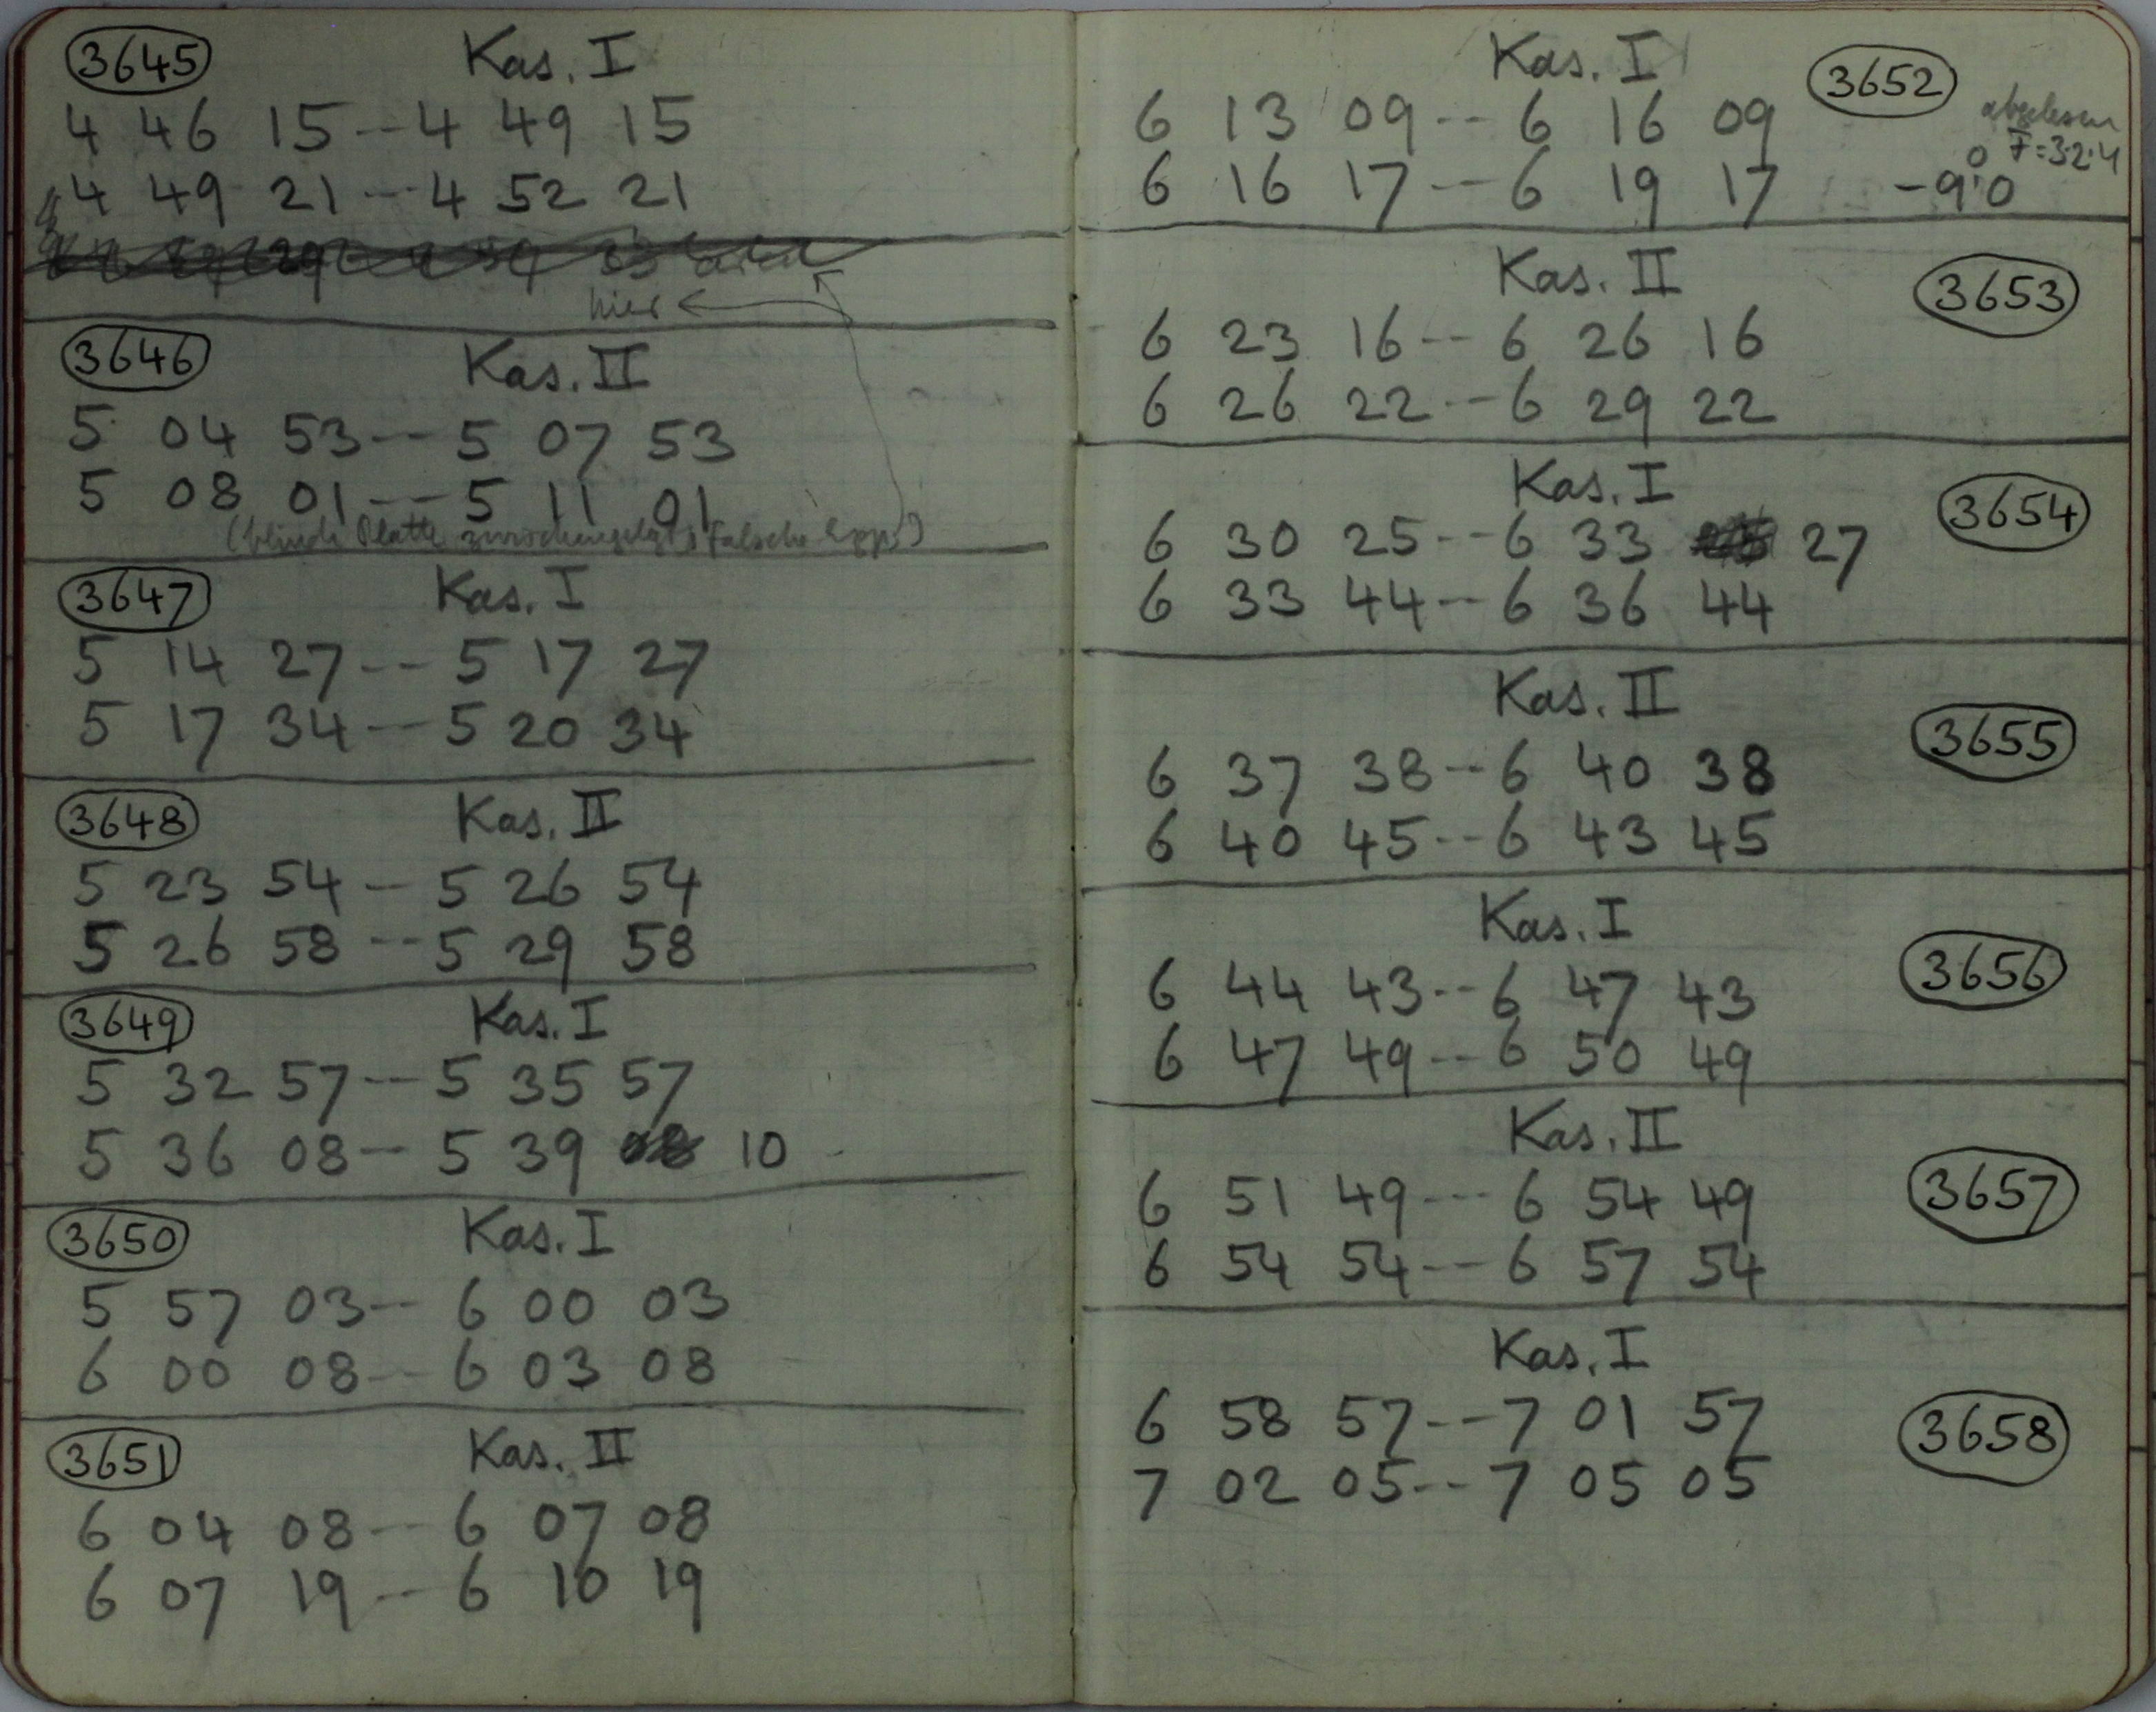 3645 Kas. I
4 46 15 -- 4 49 15
4 49 21 -- 4 52 21
hier
3646 Kas. II
5 04 53 -- 5 07 53
5 08 01 -- 5 11 01
Platte falsche
3647 Kas. I
5 14 27 -- 5 17 27
5 17 34 -- 5 20 34
3648 Kas. II
5 23 54 -- 5 26 54
5 26 58 -- 5 29 58
3649 Kas. I
5 32 57 -- 5 35 57
5 36 08 -- 5 39 08 10
3650 Kas. I
5 57 03 -- 6 00 03
6 00 08 -- 6 03 08
3651 Kas. II
6 04 08 -- 6 07 08
6 07 19 -- 6 10 19
Kas. I 3652
6 13 09 -- 6 16 09 abgelesen
6 16 17 -- 6 19 17 -9°.0
Kas. II 3653
6 23 16 -- 6 26 16
6 26 22 -- 6 29 22
Kas. I 3654
6 30 25 -- 6 33 27
6 33 44 -- 6 36 44
Kas. II 3655
6 37 38 -- 6 40 38
6 40 45 -- 6 43 45
Kas. I 3656
6 44 43 -- 6 47 43
6 47 49 -- 6 50 49
Kas. II 3657
6 51 49 --- 6 54 49
6 54 54 -- 6 57 54
Kas. I 3658
6 58 57 -- 7 01 57
7 02 05 -- 7 05 05